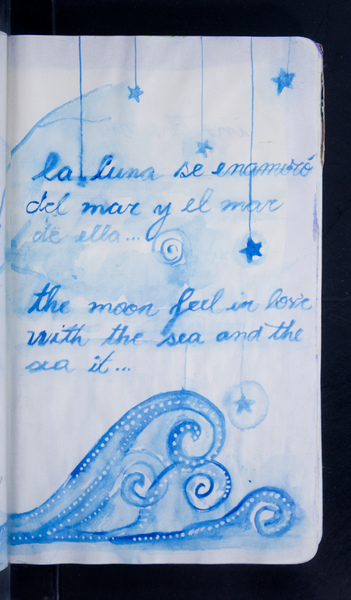 la luna se enamoró
del mar y el mar
de ella...
the moon feel in love
with the sea and the
sea it...